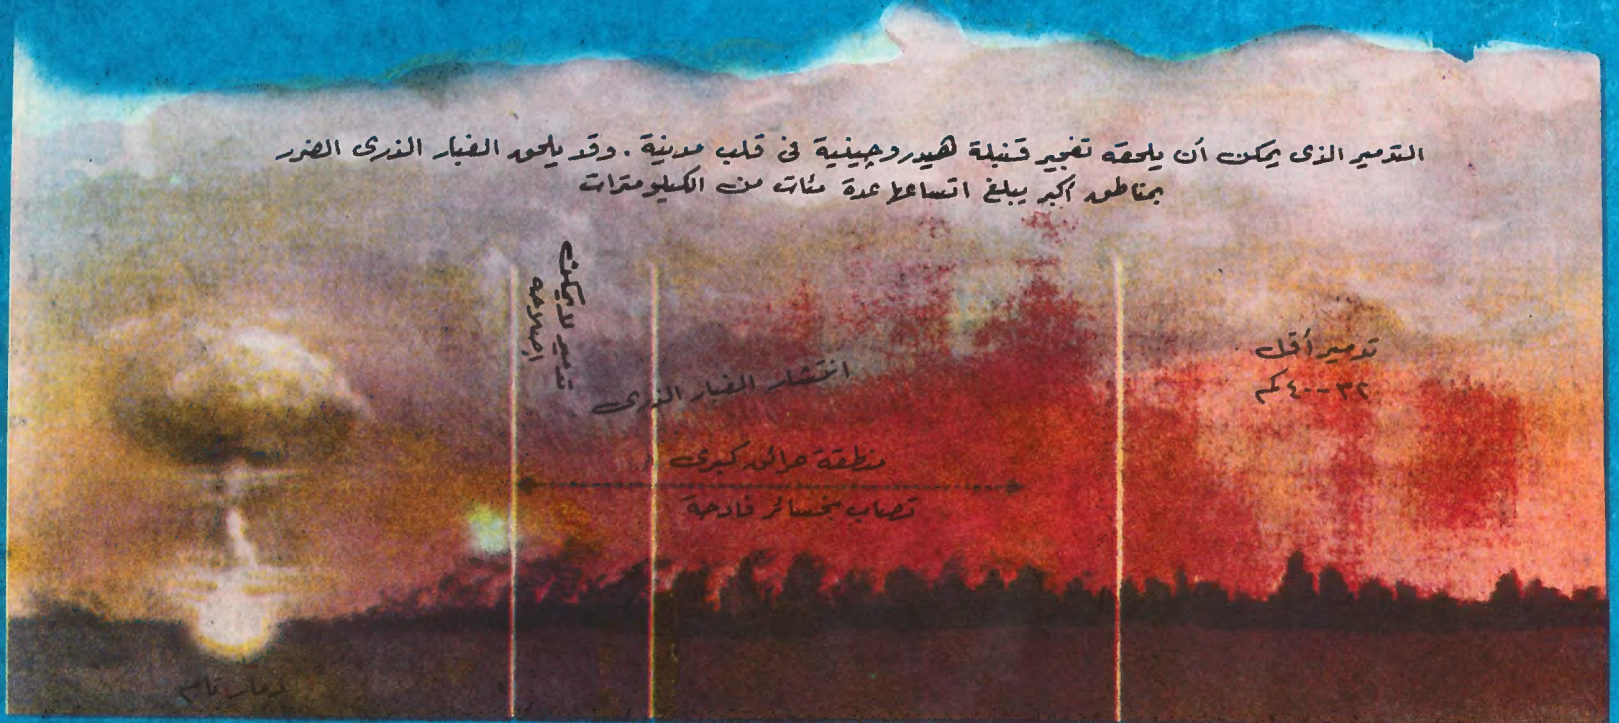 التدمير الذى يمكن أن يلحقه تفجير قنبلة هيدروچينية فى قلب مدينة . وقد يلحق الغبار الذرى الضرر
بمناطق أكبر يبلغ اتساعها عدة مئات من الكيلومترات
تدمير لا يمكن
إصلاحه
انتشار الغبار الذرى
تدمير أقل
٣٢-٤٠ كم
منطقة حرائق كبرى
تصاب بخسائر فادحة
دمار تام